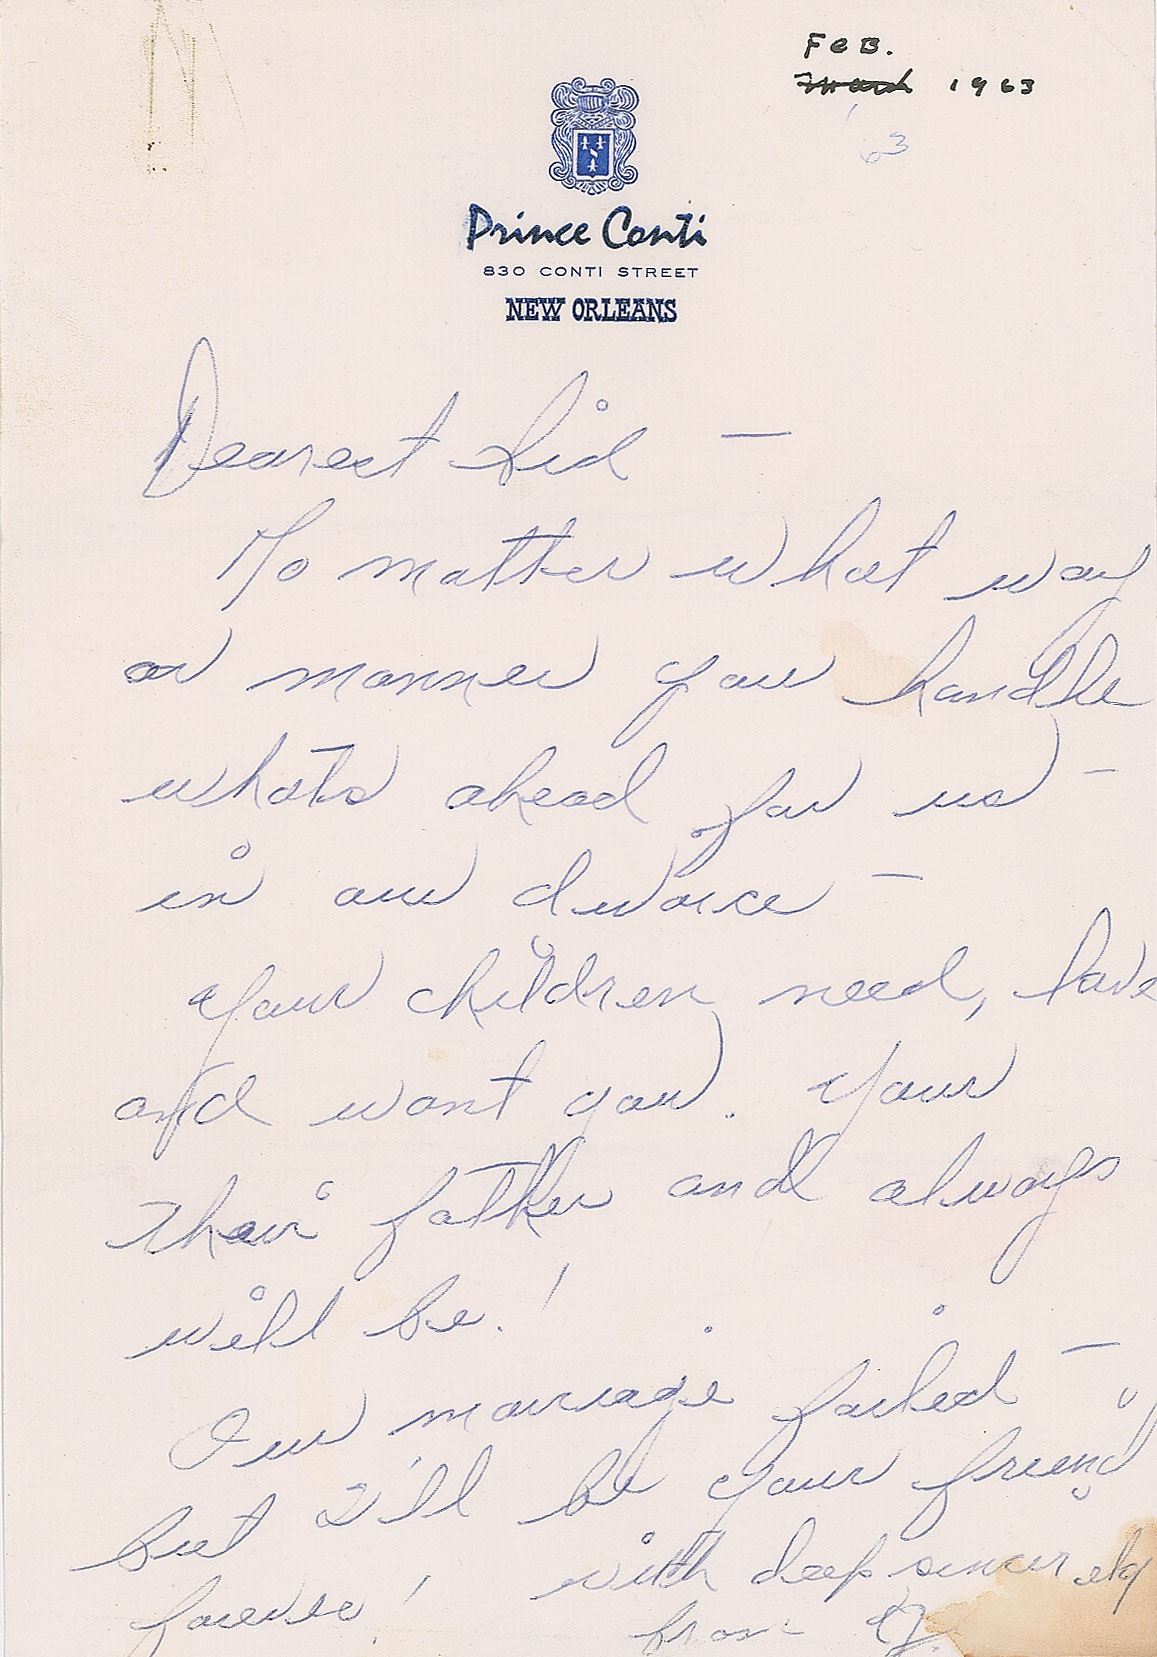 Feb.
March 1963
63
Prince Conti
830 CONTI STREET
NEW ORLEANS
Dearest Sid —
No matter what way
or manner you handle
whats ahead for us —
in our divorce —
Your children need, love
and want you. Your
their father and always
will be!
Our marriage failed —
but I'll be your friend
forever! with deep sincerely
from